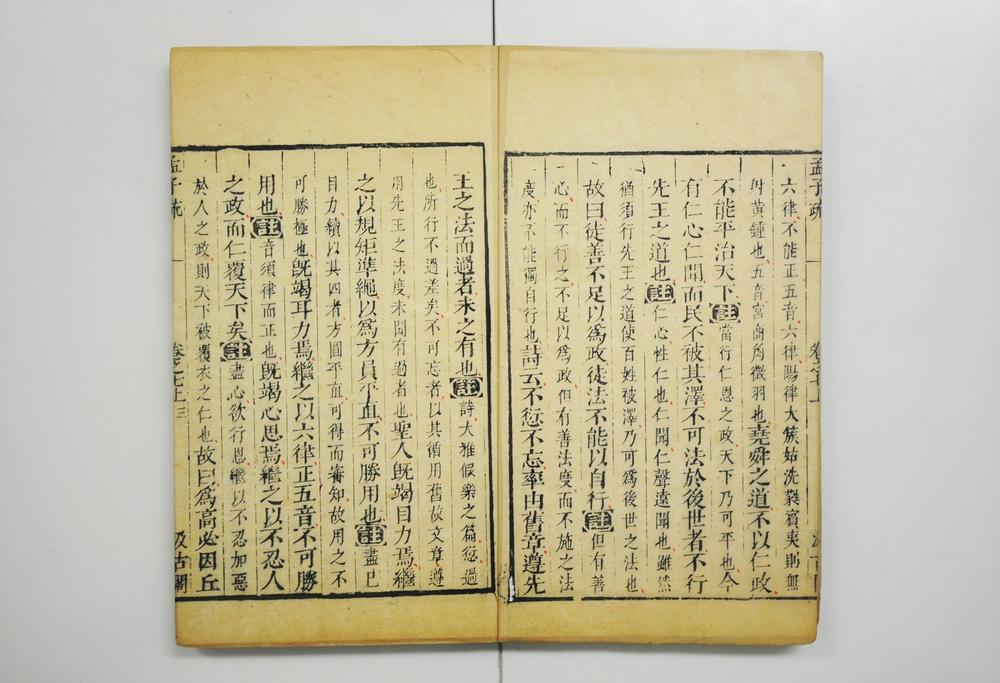 孟子疏
卷之七上
六律不能正五音六律陽律大簇姑洗蕤賓夷則無
射黃鍾也五音宮商角徵羽也堯舜之道不以仁政
不能平治天下註當行仁恩之政天下乃可平也今
有仁心仁聞而民不被其澤不可法於後世者不行
先王之道也註仁心性仁也仁聞仁聲遠聞也雖然
猶須行先王之道使百姓被澤乃可爲後世之法也
故曰徒善不足以爲政徒法不能以自行註但有善
心而不行之不足以爲政但有善法度而不施之法
度亦不能獨自行也詩云不愆不忘率由舊章遵先
王之法而過者未之有也註詩大雅假樂之篇愆過
也所行不過差矣不可忘者以其循用舊故文章遵
用先王之法度未聞有過者也聖人旣竭目力焉繼
之以規矩準繩以爲方員平直不可勝用也註盡已
目力續以其四者方圓平直可得而審知故用之不
可勝極也旣竭耳力焉繼之以六律正五音不可勝
用也註音須律而正也旣竭心思焉繼之以不忍人
之政而仁覆天下矣註盡心欲行恩繼以不忍加惡
於人之政則天下被覆衣之仁也故曰爲高必因丘
孟子疏
卷之七上
三
汲古閣